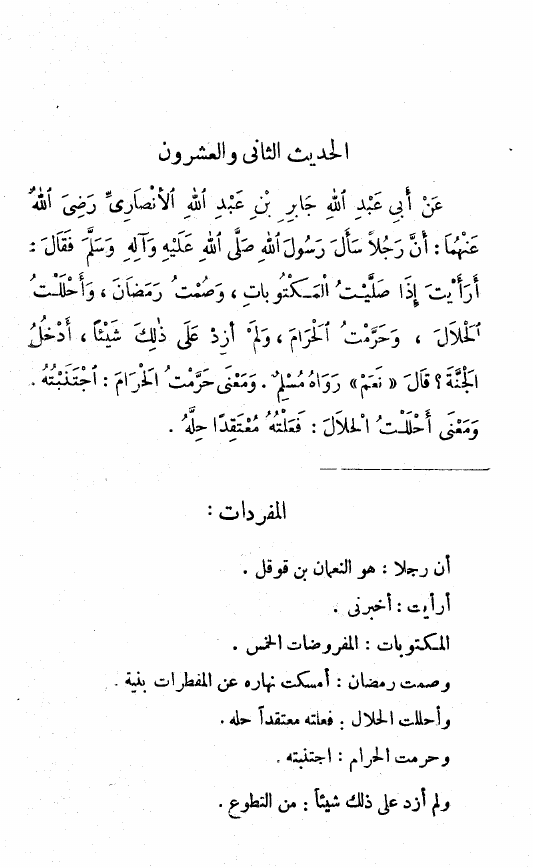 الحديث الثانى والعشرون
عَنْ أَبِي عَبْدِ اللهِ جَابِرِ بْنِ عَبْدِ اللهِ الأَنْصَارِىِّ رَضِىَ اللهُ
عَنْهُمَا : أَنَّ رَجُلاً سَأَلَ رَسُولَ اللهِ صَلَّى اللهُ عَلَيْهِ وَآلِهِ وَسَلَّمَ فَقَالَ :
أَرَأَيْتَ إِذَا صَلَّيْتُ الْمَكْتُوبَاتِ ، وَصُمْتُ رَمَضَانَ ، وَأَحْلَلْتُ
الْحَلاَلَ ، وَحَرَّمْتُ الْحَرَامَ ، وَلَمْ أَزِدْ عَلَى ذٰلِكَ شَيْئاً ، أَدْخُلُ
الجَنَّةَ ؟ قَالَ « نَعَمْ » رَوَاهُ مُسْلِمٌ . وَمَعْنَى حَرَّمْتُ الْحَرَامَ : اجْتَنَبْتُهُ .
وَمَعْنَى أَحْلَلْتُ الْحَلاَلَ : فَعَلْتُهُ مُعْتَقِدًا حِلَّهُ .
المفردات :
أن رجلا : هو النعمان بن قوقل .
أرأيت : أخبرنى .
المكتوبات : المفروضات الخمس .
وصمت رمضان : أمسكت نهاره عن المفطرات بنية .
وأحللت الحلال : فعلته معتقداً حله .
وحرمت الحرام : اجتنبته .
ولم أزد على ذلك شيئاً : من التطوع .